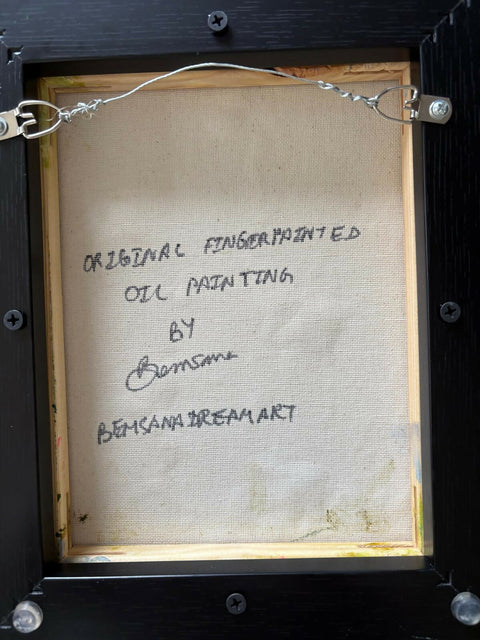 ORIGINAL FINGERPAINTED
OIL PAINTING
BY
Bemsana
BEMSANADREAMART